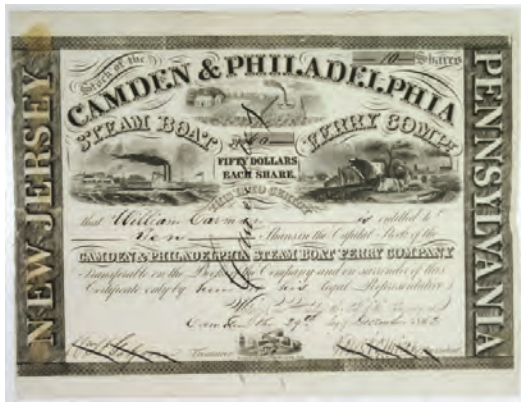 Stock of the
10 Shares
CAMDEN & PHILADELPHIA
STEAM BOAT FERRY COMPY
NEW JERSEY
PENNSYLVANIA
FIFTY DOLLARS
EACH SHARE
THIS IS TO CERTIFY
that William Carman is entitled to
Ten Shares in the Capital Stock of the
CAMDEN & PHILADELPHIA STEAM BOAT FERRY COMPANY
Transferable on the Books of the Company and on surrender of this
Certificate only by him or his legal Representative
Camden the 29th day of
Treasurer President